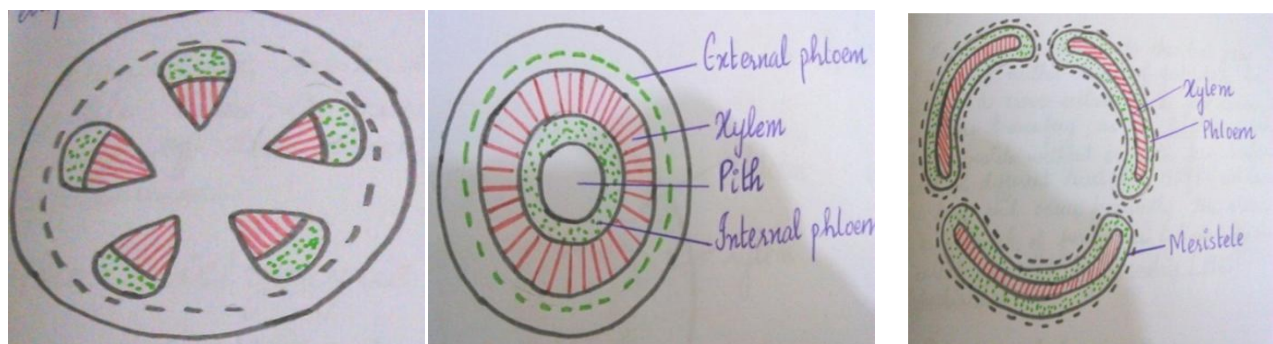 External phloem
Xylem
Pith
Internal phloem
Xylem
Phloem
Meristele